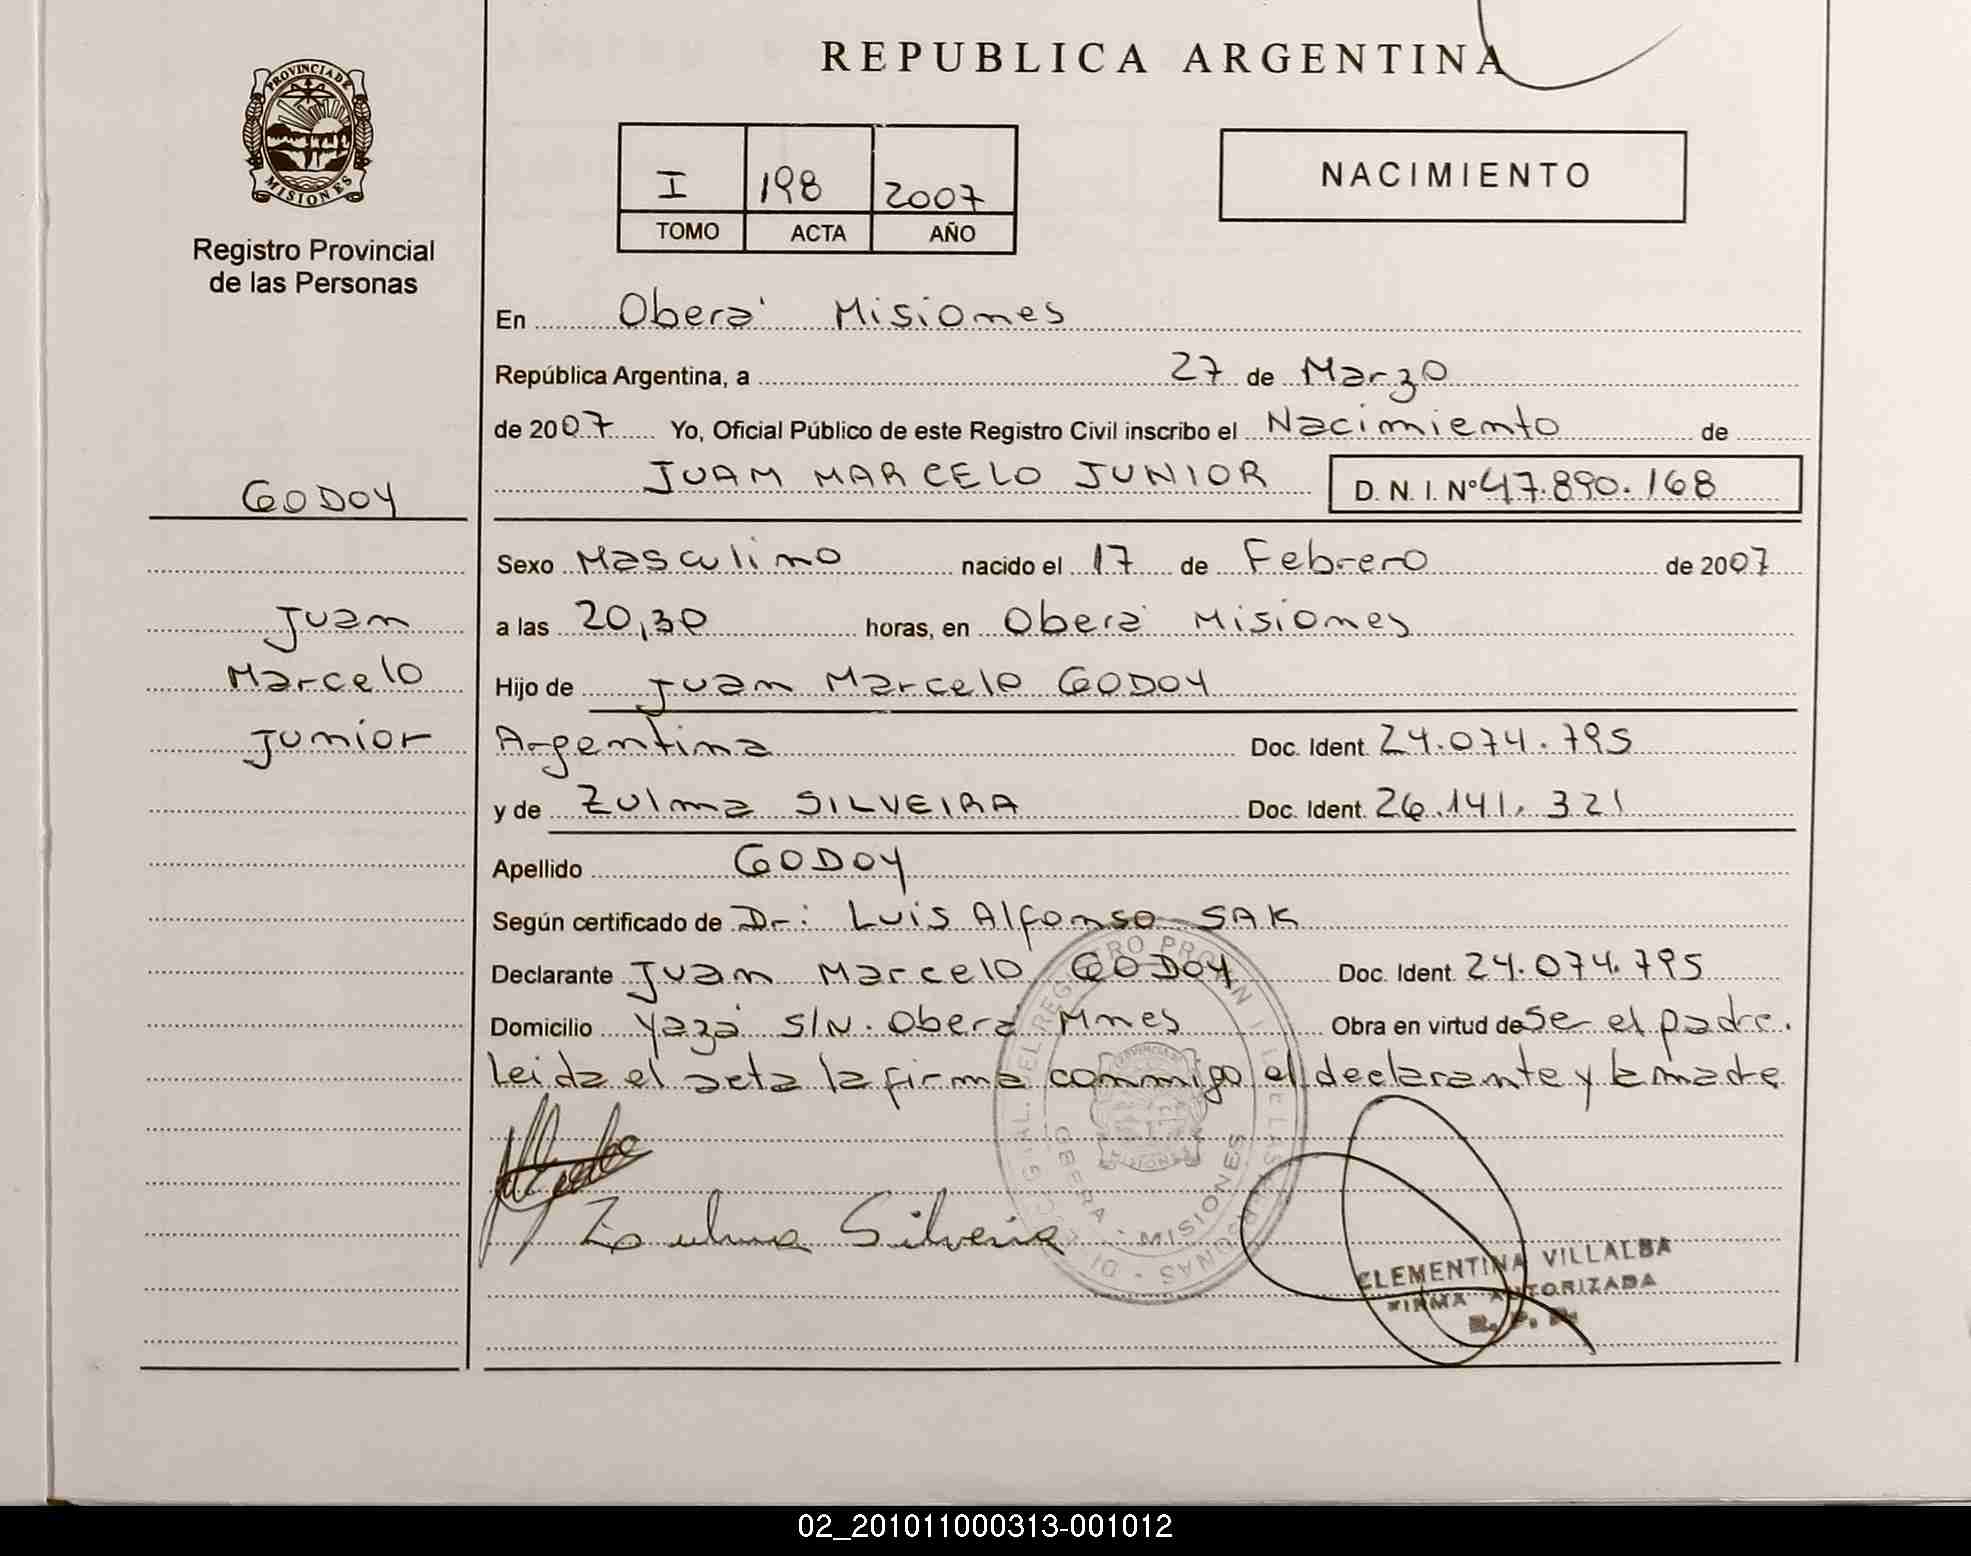 REPUBLICA ARGENTINA
PROVINCIA DE
MISIONES
Registro Provincial
de las Personas
I 198 2007
TOMO ACTA AÑO
NACIMIENTO
En Oberá Misiones
República Argentina, a 27 de Marzo
de 2007 Yo, Oficial Público de este Registro Civil inscribo el Nacimiento de
JUAN MARCELO JUNIOR D. N. I. Nº 47.890.168
GODOY
Sexo Masculino nacido el 17 de Febrero de 2007
Juan
a las 20,30 horas, en Oberá Misiones
Marcelo
Hijo de Juan Marcelo GODOY
Junior
Argentina Doc. Ident. 24.074.795
y de Zulma SILVEIRA Doc. Ident. 26.141.321
Apellido GODOY
Según certificado de Dr: Luis Alfonso SAK
Declarante Juan Marcelo GODOY Doc. Ident. 24.074.795
Domicilio Yazá S/N. Oberá Mnes Obra en virtud de Ser el padre.
Leida el acta la firma conmigo el declarante y la madre
Zulma Silveira
OBERA - MISIONES
CLEMENTINA VILLALBA
FIRMA AUTORIZADA
R. P. P.
02_201011000313-001012